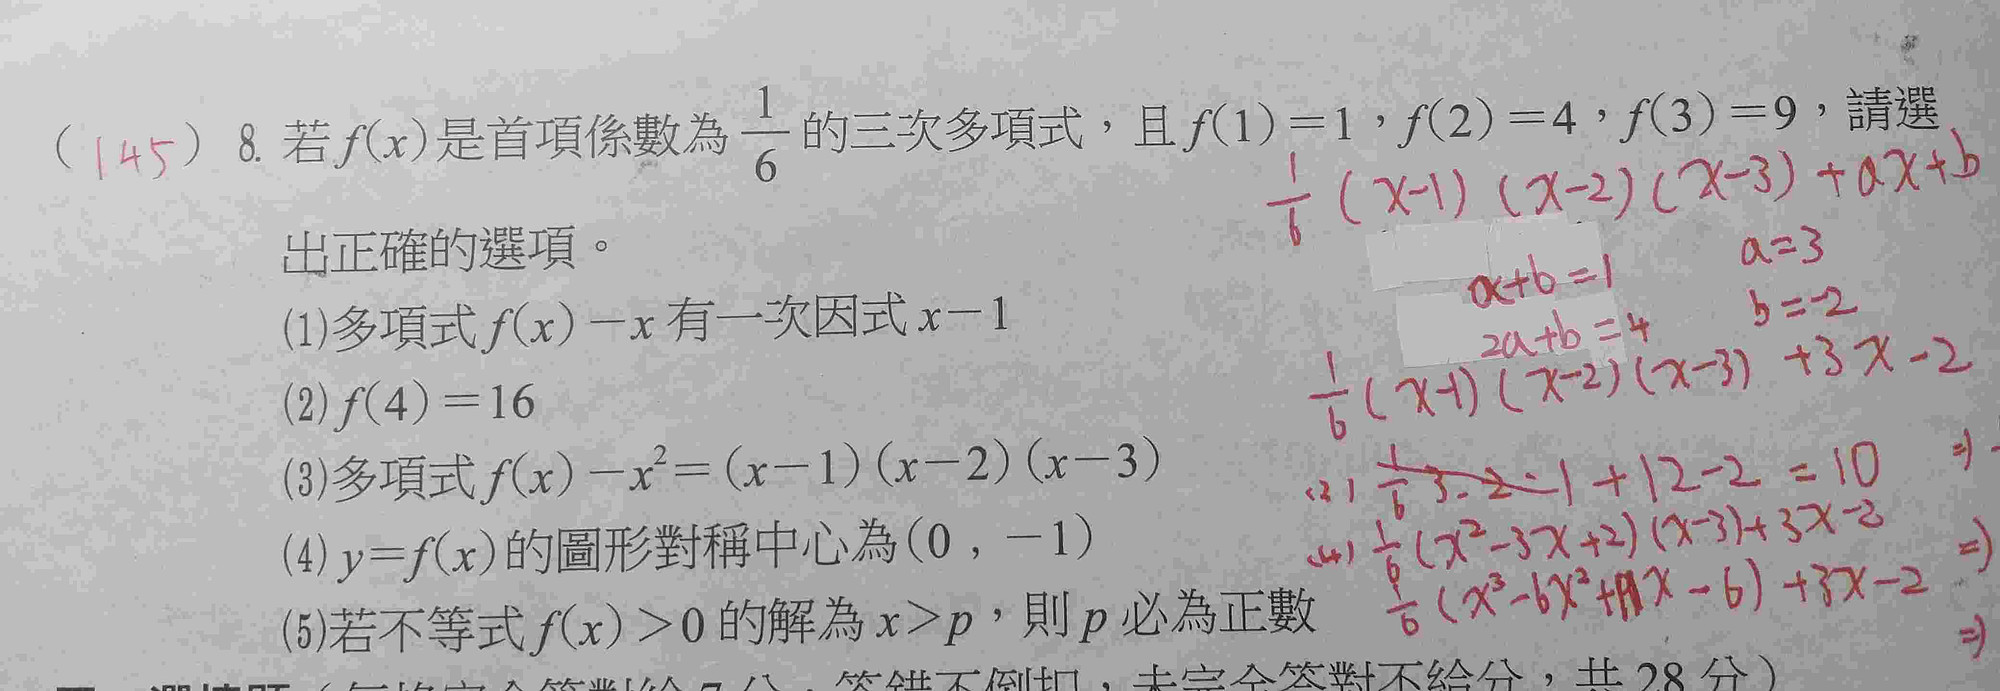 (145) 8. 若 f(x) 是首項係數為 1/6 的三次多項式，且 f(1)=1，f(2)=4，f(3)=9，請選
1/6 (x-1) (x-2) (x-3) + ax+b
出正確的選項。
a+b=1 a=3
2a+b=4 b=-2
(1)多項式 f(x)-x 有一次因式 x-1
1/6 (x-1) (x-2) (x-3) +3x-2
(2) f(4)=16
(3)多項式 f(x)-x²=(x-1)(x-2)(x-3)
(2) 1/6 3·2·1+12-2 = 10 ⇒
(4) y=f(x)的圖形對稱中心為(0，-1)
(4) 1/6 (x²-3x+2)(x-3)+3x-2
1/6 (x³-6x²+11x-6)+3x-2 ⇒
(5)若不等式 f(x)>0 的解為 x>p，則 p 必為正數
⇒
答錯不倒扣，未完全答對不給分，共 28 分）